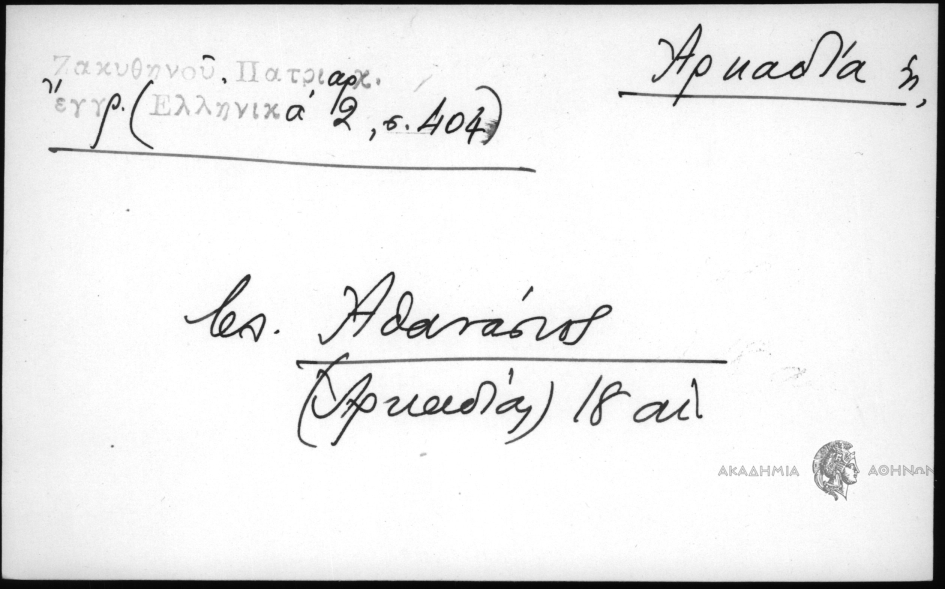 Ζακυθηνοῦ, Πατριαρχ.
ἔγγρ. (Ἑλληνικά 2, σ. 404)
Ἀρκαδία ἡ,
Ἀθανάσιος
(Ἀρκαδίας) 18 αἰ
ΑΚΑΔΗΜΙΑ ΑΘΗΝΩΝ